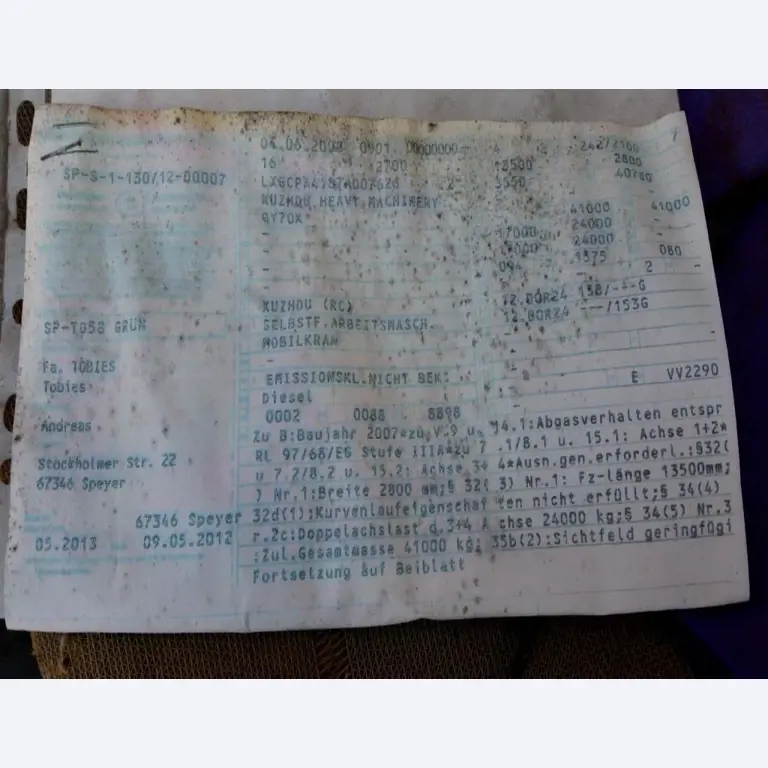 04.06.2008 0901 00000000- 4 242/2100
16 1 2700 12500 2800
SP-S-1-130/12-00007 3550 40780
XUZHOU HEAVY MACHINERY 41000 41000
QY70K 24000
- 17000 24000
- 1575 080
- 09 2 -
XUZHOU (RC) 12.00R24 158/-+-G
SP-T058 GRÜN SELBSTF.ARBEITSMASCH. 12.00R24 ---/153G
MOBILKRAN - -
Fa. TOBIES -
Tobies EMISSIONSKL.NICHT BEK. E VV2290
Diesel -
0002 0088 8898
Andreas Zu B:Baujahr 2007*zu V.9 u. 14.1:Abgasverhalten entspr
RL 97/68/EG Stufe IIIA*zu 7.1/8.1 u. 15.1: Achse 1+2*
Stockholmer Str. 22 u 7.2/8.2 u. 15.2: Achse 3+4*Ausn.gen.erforderl.:§32(
67346 Speyer ) Nr.1:Breite 2800 mm;§ 32( 3) Nr.1: Fz-länge 13500mm;
32d(1):Kurvenlaufeigenschaften nicht erfüllt;§ 34(4)
67346 Speyer r.2c:Doppelachslast d.3+4 Achse 24000 kg;§ 34(5) Nr.3
05.2013 09.05.2012 :zul.Gesamtmasse 41000 kg; 35b(2):Sichtfeld geringfügi
Fortsetzung auf Beiblatt